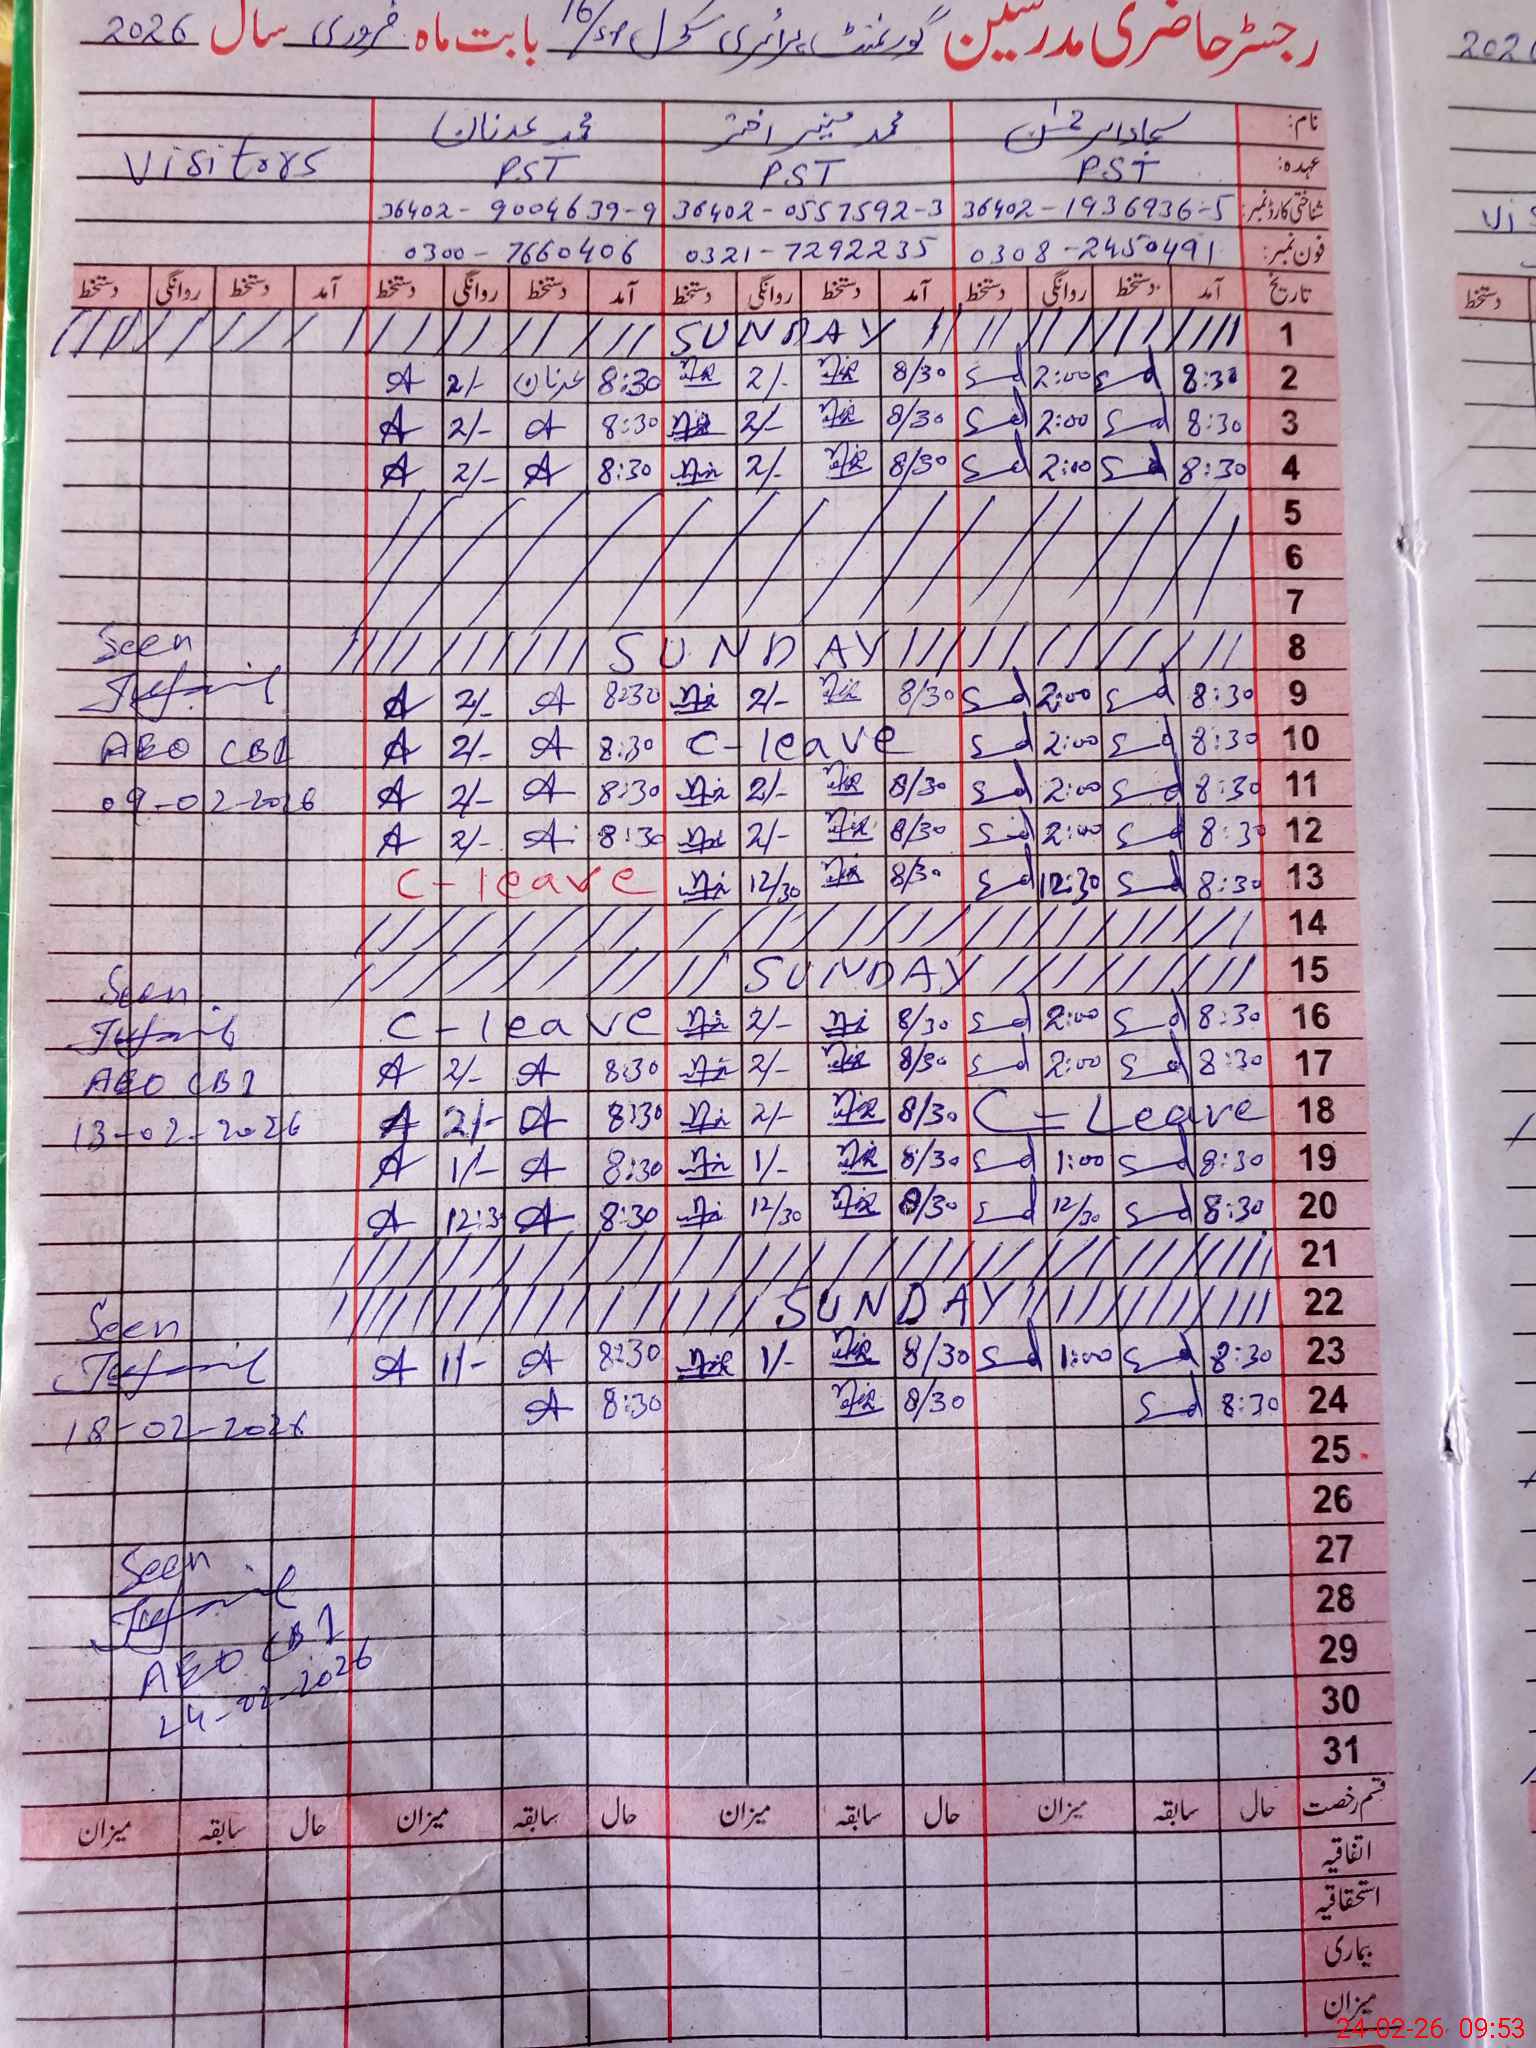 رجسٹر حاضری مدرسین گورنمنٹ پرائمری سکول 16/SP بابت ماہ فروری سال 2026
نام: محمد منیر اختر محمد عدنان
عہدہ: PST PST PST Visitors
شناختی کارڈ نمبر: 36402-1936936-5 36402-0557592-3 36402-9004639-9
فون نمبر: 0308-2450491 0321-7292235 0300-7660406
تاریخ آمد دستخط روانگی دستخط آمد دستخط روانگی دستخط آمد دستخط روانگی دستخط آمد دستخط روانگی دستخط
1 SUNDAY
2 8:30 2:00 8/30 2/- 8:30 عدنان 2/- A
3 8:30 2:00 8/30 2/- 8:30 A 2/- A
4 8:30 2:00 8/30 2/- 8:30 A 2/- A
5
6
7
8 SUNDAY Seen
9 8:30 2:00 8/30 2/- 8:30 A 2/- A
10 8:30 2:00 C-leave 8:30 A 2/- A AEO CB1
11 8:30 2:00 8/30 2/- 8:30 A 2/- A 09-02-2026
12 8:30 2:00 8/30 2/- 8:30 A 2/- A
13 8:30 12:30 8/30 12/30 C-leave
14
15 SUNDAY Seen
16 8:30 2:00 8/30 2/- C-leave
17 8:30 2:00 8/30 2/- 8:30 A 2/- A AEO CB1
18 C-Leave 8/30 2/- 8:30 A 2/- A 13-02-2026
19 8:30 1:00 8/30 1/- 8:30 A 1/- A
20 8:30 12/30 8/30 12/30 8:30 A 12:30 A
21
22 SUNDAY Seen
23 8:30 1:00 8/30 1/- 8:30 A 1/- A
24 8:30 8/30 8:30 A 18-02-2026
25
26
27 Seen
28
29 AEO CB1
30 24-02-2026
31
قسم رخصت حال سابقہ میزان حال سابقہ میزان حال سابقہ میزان حال سابقہ میزان
اتفاقیہ
استحقاقیہ
بیماری
میزان
2026
دستخط
24-02-26 09:53